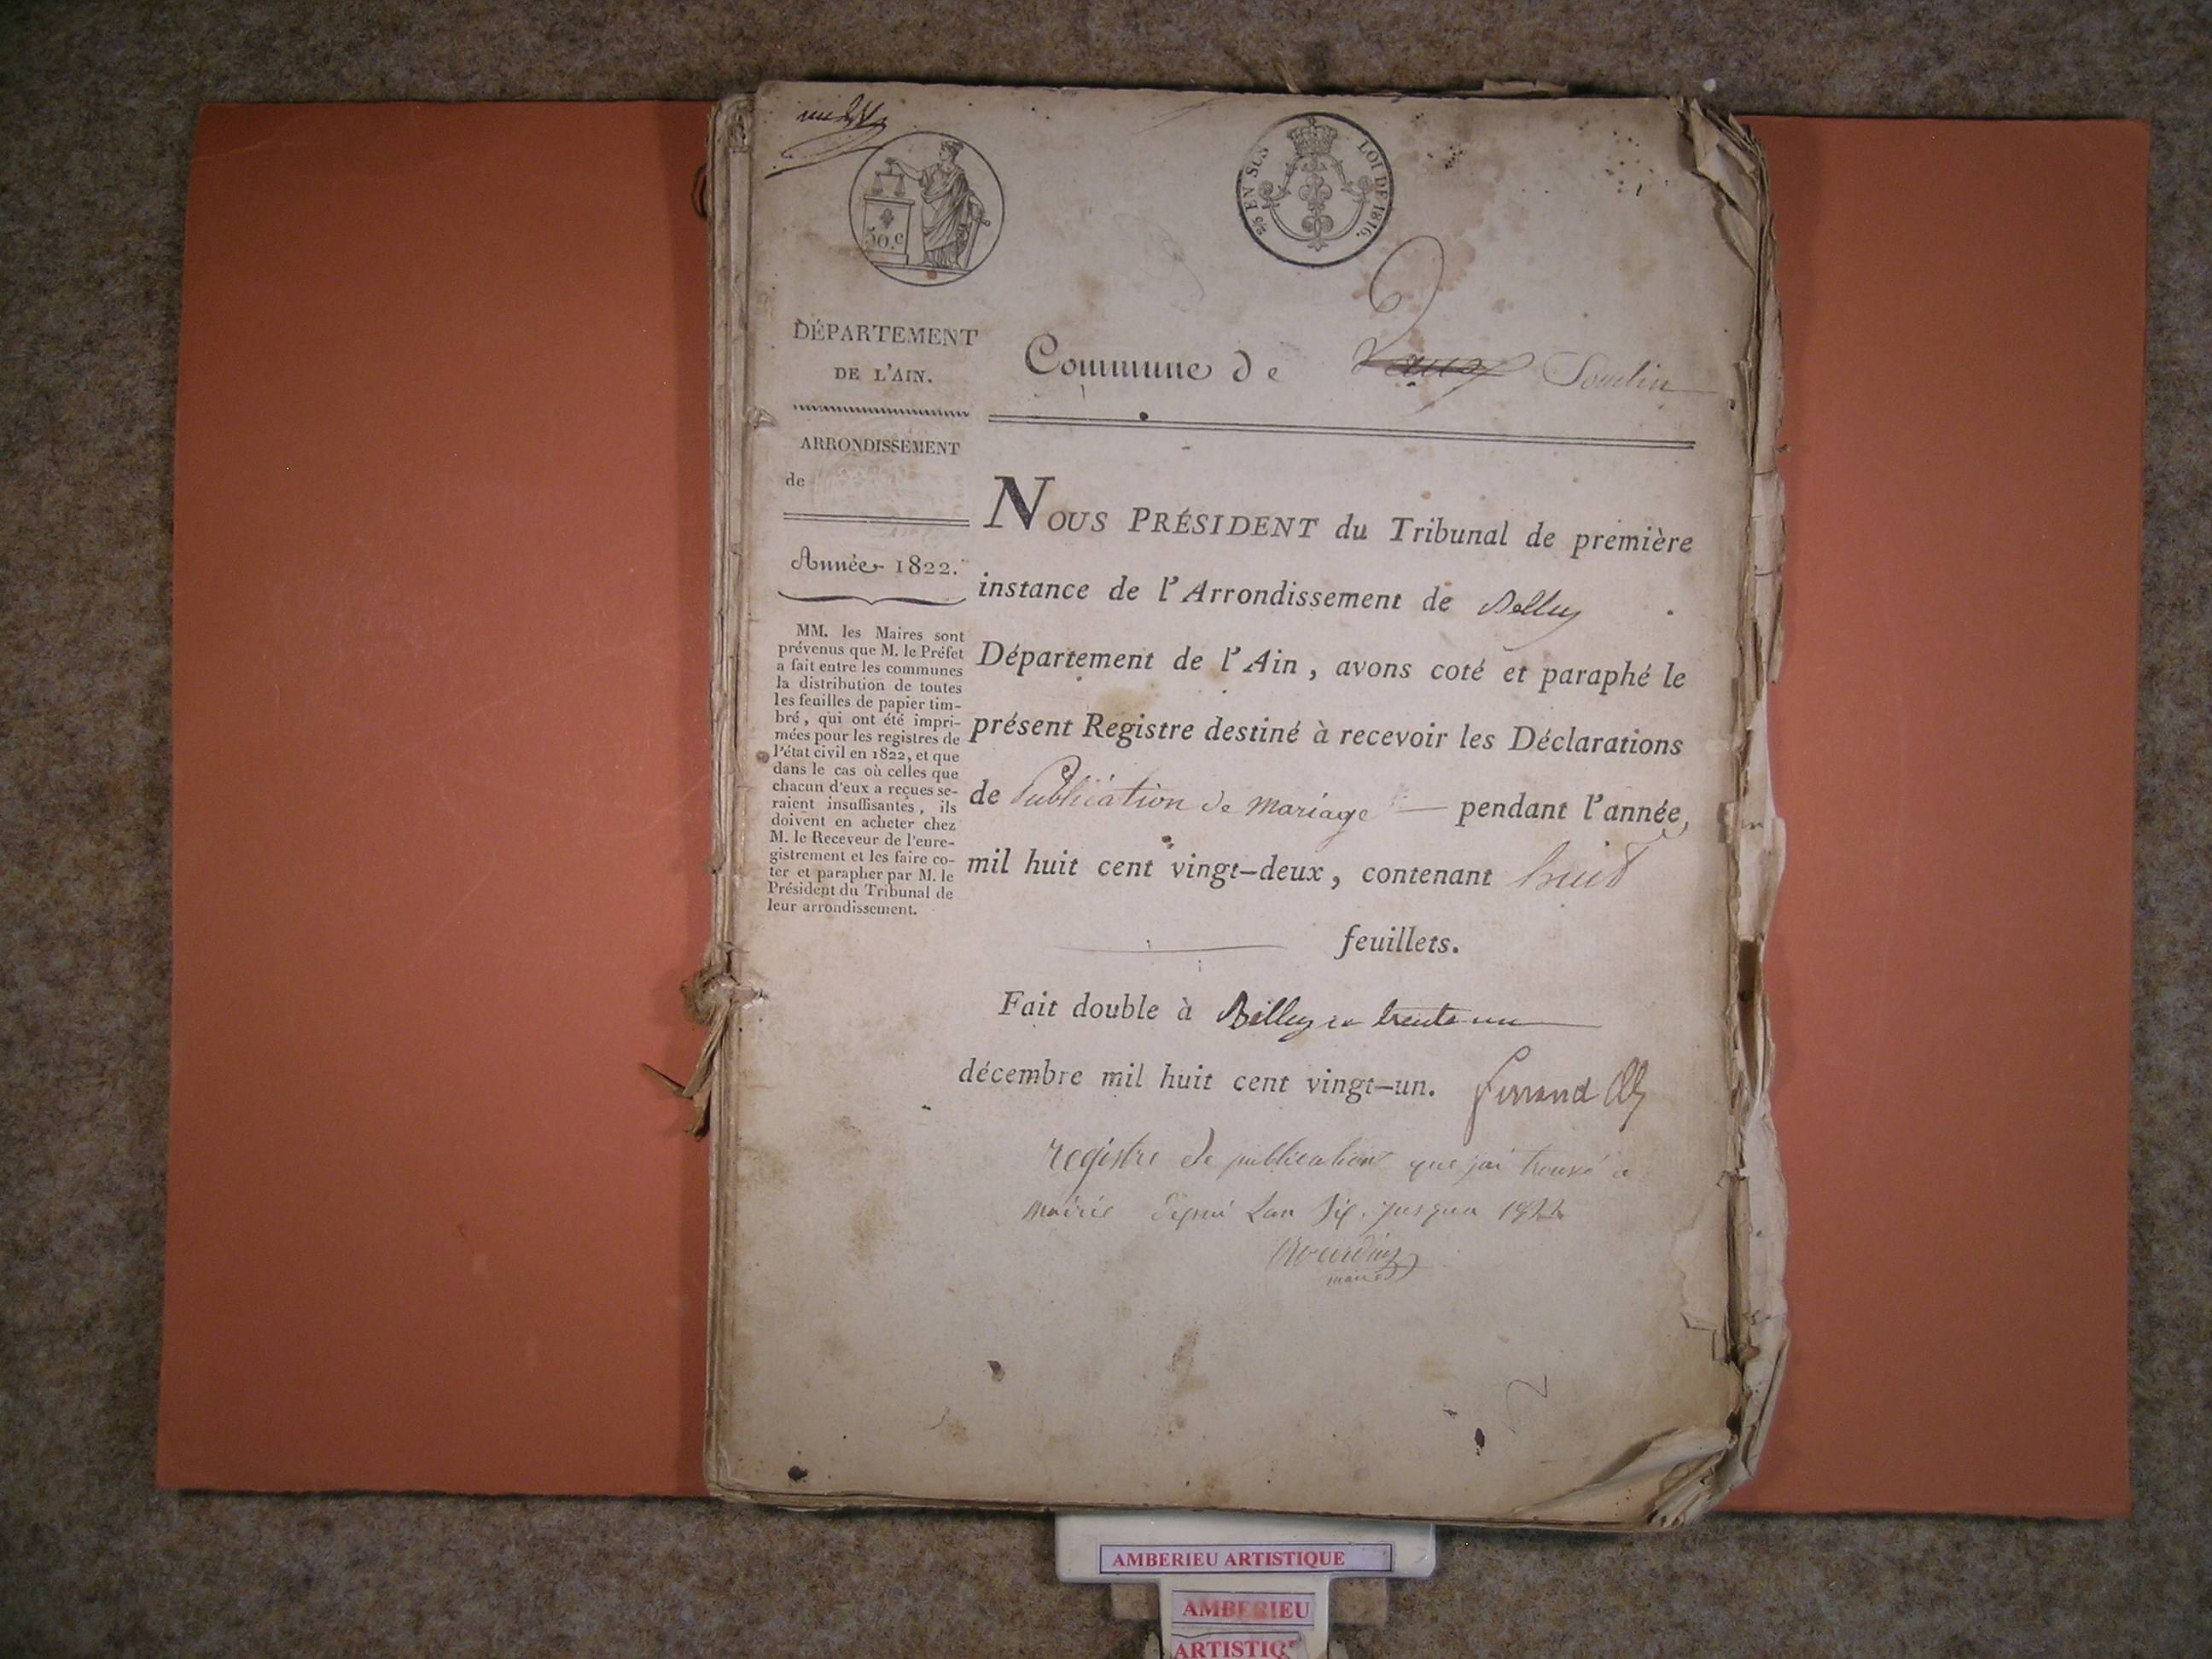 50.c
2/5 EN SUS LOI DE 1816.
DÉPARTEMENT
DE L'AIN.
Commune de Vaux Soudin
ARRONDISSEMENT
de
Année 1822.
MM. les Maires sont
prévenus que M. le Préfet
a fait entre les communes
la distribution de toutes
les feuilles de papier tim-
bré, qui ont été impri-
mées pour les registres de
l'état civil en 1822, et que
dans le cas où celles que
chacun d'eux a reçues se-
raient insuffisantes, ils
doivent en acheter chez
M. le Receveur de l'enre-
gistrement et les faire co-
ter et parapher par M. le
Président du Tribunal de
leur arrondissement.
NOUS PRÉSIDENT du Tribunal de première
instance de l'Arrondissement de Belley
Département de l'Ain, avons coté et paraphé le
présent Registre destiné à recevoir les Déclarations
de Publication de mariage — pendant l'année,
mil huit cent vingt-deux, contenant huit
feuillets.
Fait double à Belley le trente un
décembre mil huit cent vingt-un. Ferrand
registre de publication que jai trouvé a
mairie depui Lan Six. jusqua 1822
maire
AMBERIEU ARTISTIQUE
AMBERIEU
ARTISTIQ